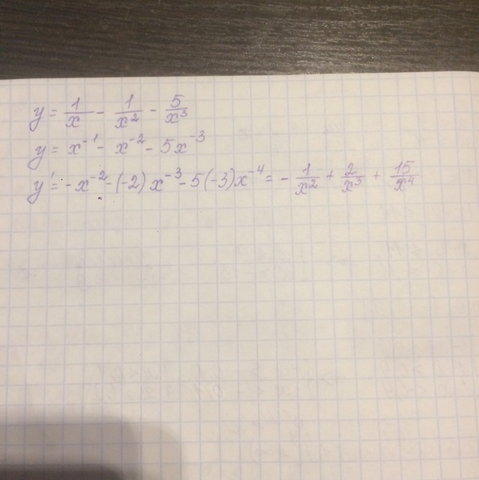 y = 1/x - 1/x² - 5/x³
y = x⁻¹ - x⁻² - 5x⁻³
y' = -x⁻² - (-2)x⁻³ - 5(-3)x⁻⁴ = - 1/x² + 2/x³ + 15/x⁴